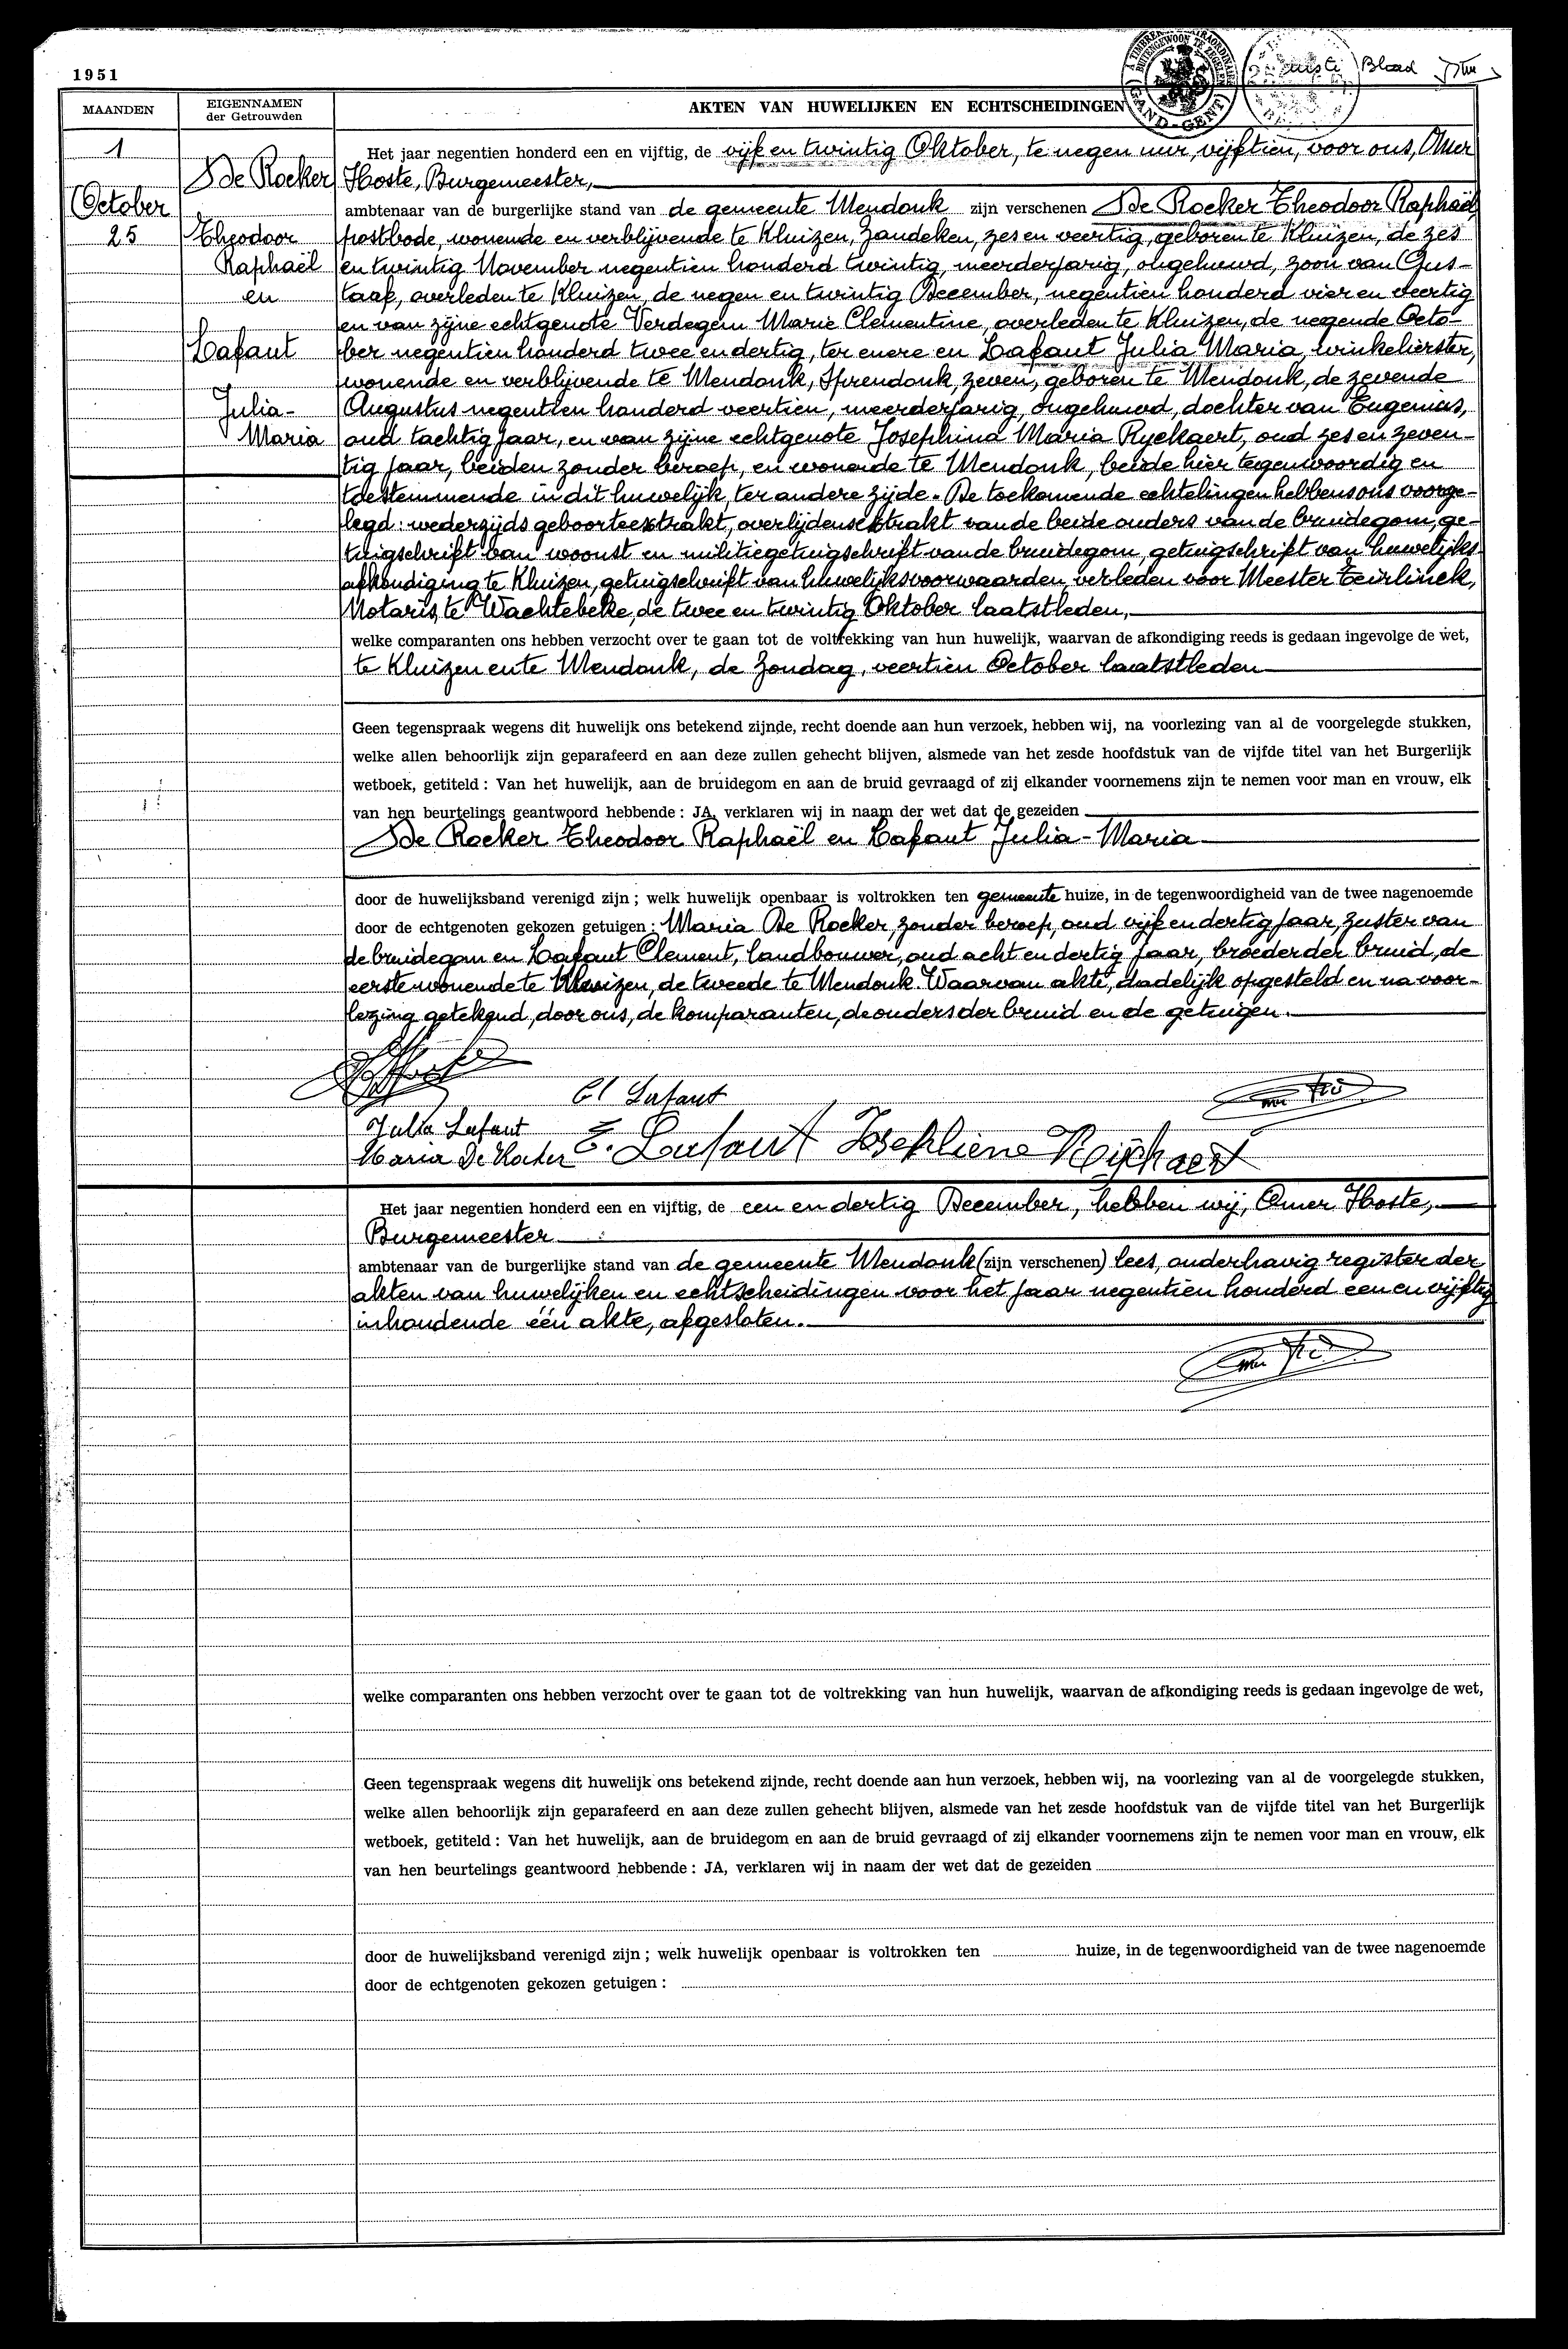 1951
A TIMBRER EXTRAORDINAIRE
BUITENGEWOON TE ZEGELEN
GAND - GENT
Blad
MAANDEN
EIGENNAMEN
der Getrouwden
AKTEN VAN HUWELIJKEN EN ECHTSCHEIDINGEN
1
October
25
De Rocker
Theodoor
Raphaël
en
Lafaut
Julia-
Maria
Het jaar negentien honderd een en vijftig, de vijf en twintig Oktober, te negen uur, vijftien, voor ons, Omer
Hoste, Burgemeester,
ambtenaar van de burgerlijke stand van de gemeente Mendonk zijn verschenen De Rocker Theodoor Raphaël
postbode, wonende en verblijvende te Kluizen, Zandeken, zes en veertig, geboren te Kluizen, de zes
en twintig November negentien honderd twintig, meerderjarig, ongehuwd, zoon van Gus-
taaf, overleden te Kluizen, de negen en twintig December, negentien honderd vier en veertig
en van zijne echtgenote Verdegem Marie Clementine, overleden te Kluizen, de negende Octo-
ber negentien honderd twee en dertig, ter enere en Lafaut Julia Maria, winkelierster,
wonende en verblijvende te Mendonk, Sprendonk, zeven, geboren te Mendonk, de zevende
Augustus negentien honderd veertien, meerderjarig, ongehuwd, dochter van Eugenius,
oud tachtig jaar, en van zijne echtgenote Josephina Maria Ryckaert, oud zes en zeven-
tig jaar, beiden zonder beroep, en wonende te Mendonk, beide hier tegenwoordig en
toestemmende in dit huwelijk, ter andere zijde. De toekomende echtelingen hebben ons voorge-
legd: wederzijds geboorteextrakt, overlijdensextrakt van de beide ouders van de bruidegom, ge-
tuigschrift van woonst en militiegetuigschrift van de bruidegom, getuigschrift van huwelijks-
afkondiging te Kluizen, getuigschrift van huwelijksvoorwaarden, verleden voor Meester Teirlinck,
Notaris, te Wachtebeke, de twee en twintig Oktober laatstleden,
welke comparanten ons hebben verzocht over te gaan tot de voltrekking van hun huwelijk, waarvan de afkondiging reeds is gedaan ingevolge de wet,
te Kluizen en te Mendonk, de Zondag, veertien October laatstleden
Geen tegenspraak wegens dit huwelijk ons betekend zijnde, recht doende aan hun verzoek, hebben wij, na voorlezing van al de voorgelegde stukken,
welke allen behoorlijk zijn geparafeerd en aan deze zullen gehecht blijven, alsmede van het zesde hoofdstuk van de vijfde titel van het Burgerlijk
wetboek, getiteld : Van het huwelijk, aan de bruidegom en aan de bruid gevraagd of zij elkander voornemens zijn te nemen voor man en vrouw, elk
van hen beurtelings geantwoord hebbende : JA, verklaren wij in naam der wet dat de gezeiden
De Rocker Theodoor Raphaël en Lafaut Julia-Maria
door de huwelijksband verenigd zijn ; welk huwelijk openbaar is voltrokken ten gemeente huize, in de tegenwoordigheid van de twee nagenoemde
door de echtgenoten gekozen getuigen : Maria De Rocker, zonder beroep, oud vijf en dertig jaar, zuster van
de bruidegom en Lafaut Clement, landbouwer, oud acht en dertig jaar, broeder der bruid, de
eerste wonende te Kluizen, de tweede te Mendonk. Waarvan akte, dadelijk opgesteld en na voor-
lezing getekend, door ons, de komparanten, de ouders der bruid en de getuigen.
Cl Lafaut
Julia Lafaut
Maria De Rocker E. Lafaut Josephiene Rijckaert
Het jaar negentien honderd een en vijftig, de een en dertig December, hebben wij, Omer Hoste,
Burgemeester
ambtenaar van de burgerlijke stand van de gemeente Mendonk (zijn verschenen) lees, onderhavig register der
akten van huwelijken en echtscheidingen voor het jaar negentien honderd een en vijftig
inhoudende één akte, afgesloten.
welke comparanten ons hebben verzocht over te gaan tot de voltrekking van hun huwelijk, waarvan de afkondiging reeds is gedaan ingevolge de wet,
Geen tegenspraak wegens dit huwelijk ons betekend zijnde, recht doende aan hun verzoek, hebben wij, na voorlezing van al de voorgelegde stukken,
welke allen behoorlijk zijn geparafeerd en aan deze zullen gehecht blijven, alsmede van het zesde hoofdstuk van de vijfde titel van het Burgerlijk
wetboek, getiteld : Van het huwelijk, aan de bruidegom en aan de bruid gevraagd of zij elkander voornemens zijn te nemen voor man en vrouw, elk
van hen beurtelings geantwoord hebbende : JA, verklaren wij in naam der wet dat de gezeiden
door de huwelijksband verenigd zijn ; welk huwelijk openbaar is voltrokken ten huize, in de tegenwoordigheid van de twee nagenoemde
door de echtgenoten gekozen getuigen :